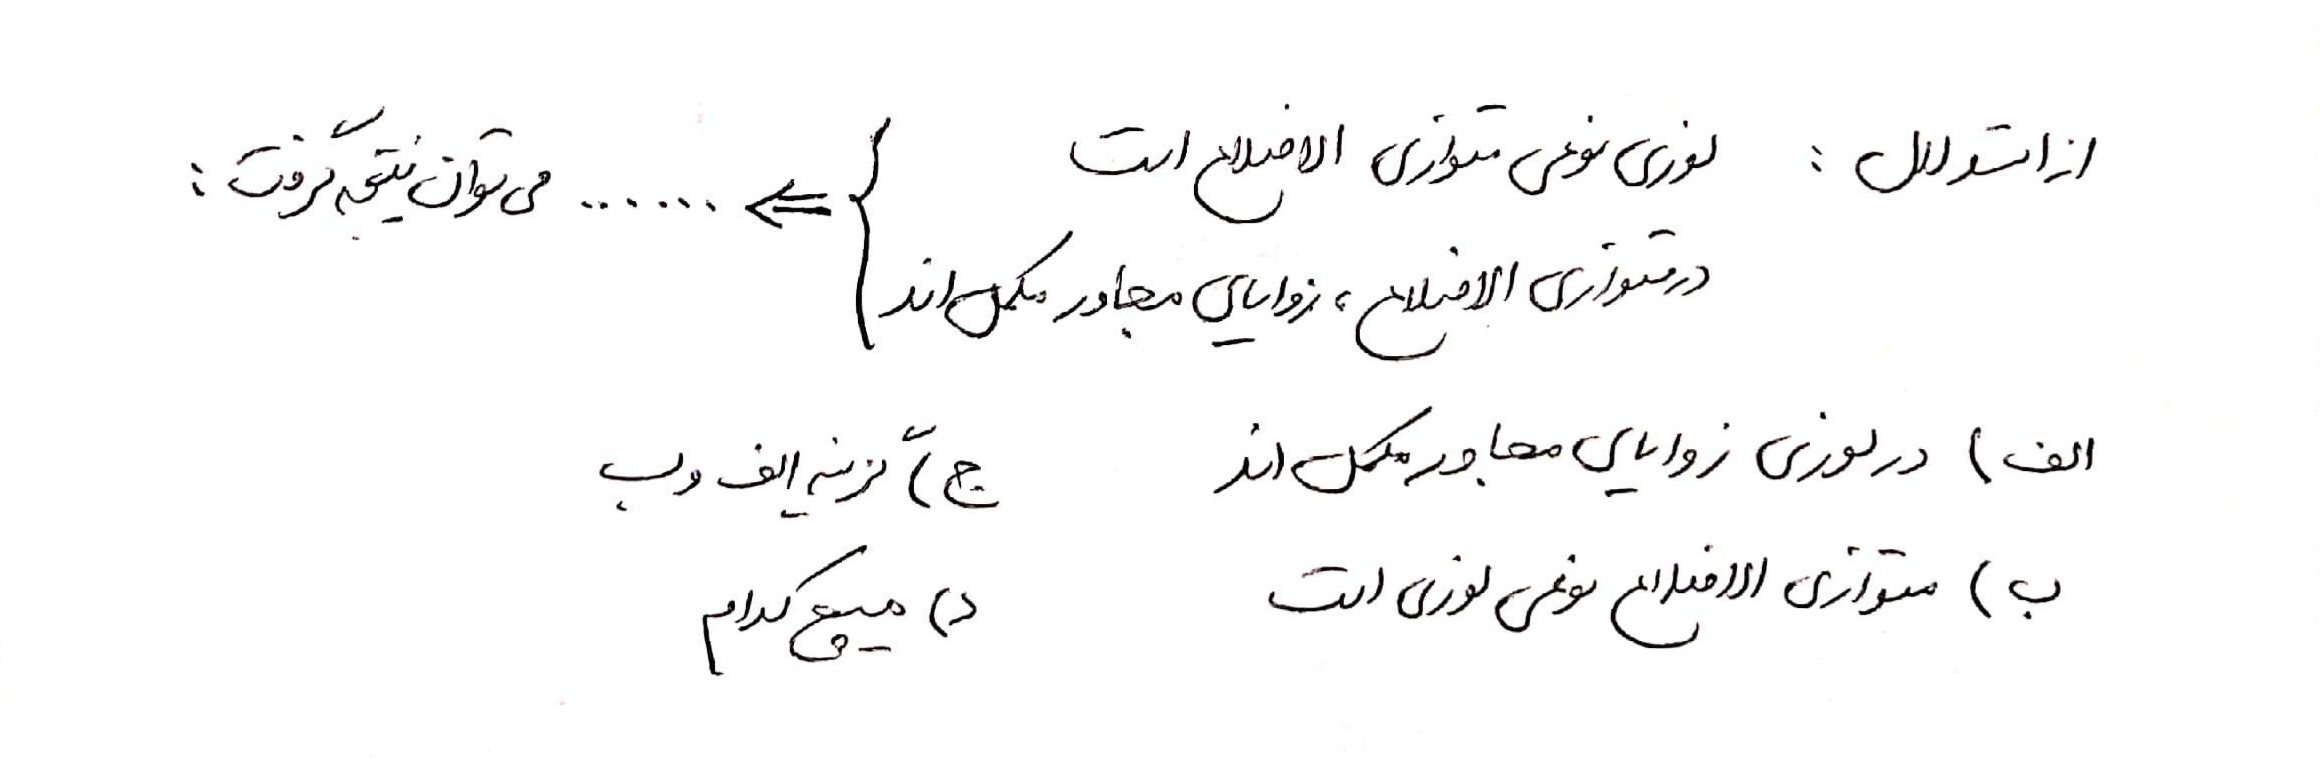 از استدلال : لوزی نوعی متوازی الاضلاع است
در متوازی الاضلاع ، زوایای مجاور مکمل اند } ⇐ ...... می توان نتیجه گرفت :
الف) در لوزی زوایای مجاور مکمل اند
ج) گزینه الف و ب
ب) متوازی الاضلاع نوعی لوزی است
د) هیچ کدام